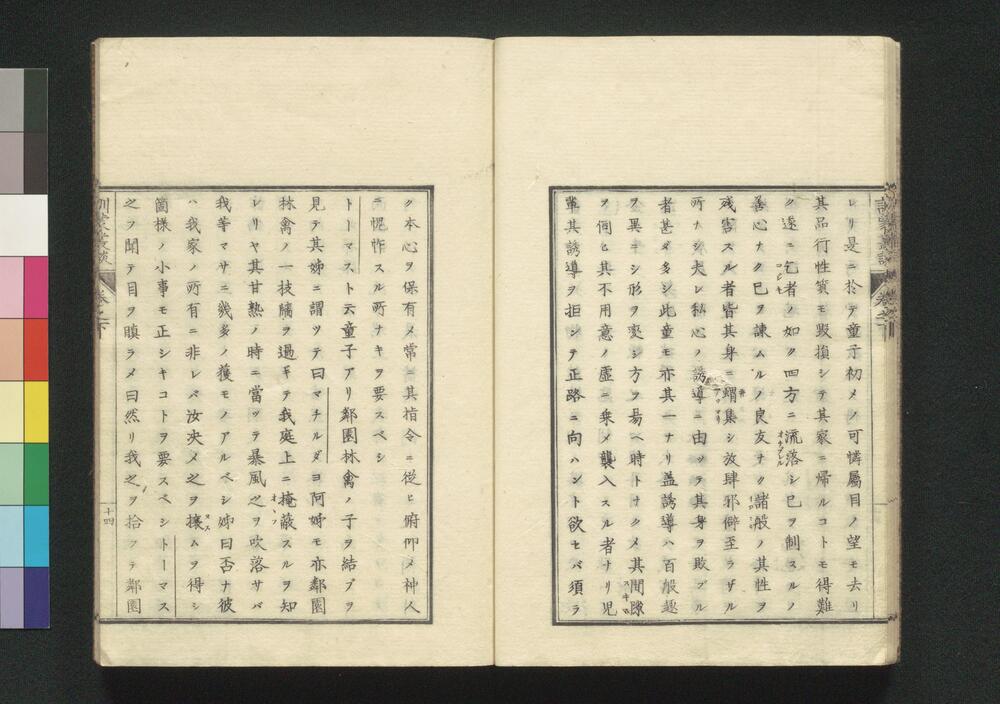 レリ是ニ於テ童子初メノ可憐屬目ノ望モ去リ
其品行性質モ毀損シテ其家ニ帰ルコトモ得難
ク遂ニ乞者ノ如ク四方ニ流落シ已ヲ制スルノ
コジキ
オチブレル
善心ナク已ヲ諫ムルノ良友ナク諸般ノ其性ヲ
残害スル者皆其身ニ蝟集シ放肆邪僻至ラザル
所ナシ夫レ私心ノ誘導ニ由ッテ其身ヲ敗ブル
者甚ダ多シ此童モ亦其一ナリ盖誘導ハ百般趣
ヲ異ニシ形ヲ変シ方ヲ易ヘ時トナク〆其間隙
スキマ
ヲ伺ヒ其不用意ノ虚ニ乗〆襲入スル者ナリ児
輩其誘導ヲ拒シテ正路ニ向ハント欲セバ須ラ
ク本心ヲ保有〆常ニ其指令ニ従ヒ俯仰〆神人
ニ愧怍スル所ナキヲ要スベシ
トーマスト云童子アリ鄰園林禽ノ子ヲ結ブヲ
見テ其姉ニ謂ツテ曰マチルダヨ阿姉モ亦鄰園
林禽ノ一枝牆ヲ過ギテ我庭上ニ掩蔽スルヲ知
オホフ
レリヤ其甘熟ノ時ニ當ッテ暴風之ヲ吹落サバ
我等マサニ幾多ノ獲モノアルベシ姉曰否ナ彼
ハ我家ノ所有ニ非レバ汝決〆之ヲ攘ムヲ得シ
ヌス
箇様ノ小事モ正シキコトヲ要スベシトーマス
之ヲ聞テ目ヲ瞋ラ〆曰然リ我之ヲ拾フテ鄰園
訓蒙叢談
卷之下
十四